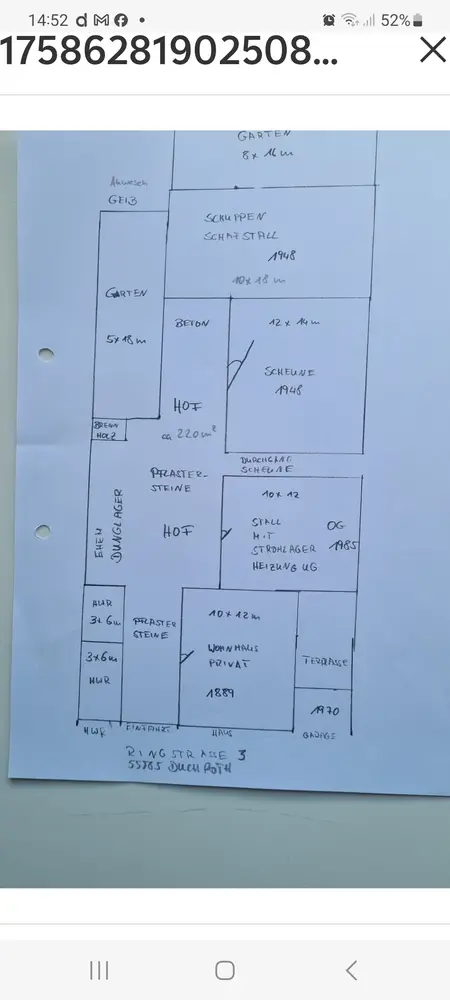 14:52 d M
52%
17586281902508...
GARTEN
8 x 16 m
Anwesen
GEIS
SCHUPPEN
SCHAFSTALL
1948
10 x 18 m
GARTEN
5 x 18 m
BETON
12 x 14 m
SCHEUNE
1948
HOF
ca 220 m²
BRENN
HOLZ
DURCHGANG
SCHEUNE
PFLASTER-
STEINE
10 x 12
EHEM
DUNGLAGER
HOF
STALL
MIT
STROHLAGER
HEIZUNG UG
OG
1985
HWR
3 x 6 m
PFLASTER
STEINE
10 x 12 m
3 x 6 m
HWR
WOHNHAUS
PRIVAT
1889
TERRASSE
1970
HWR
EINFAHRT
HAUS
GARAGE
RINGSTRASSE 3
55585 DUCHROTH